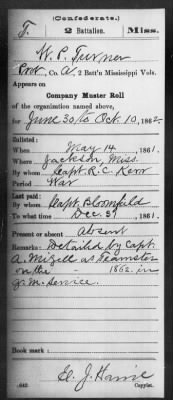 (Confederate.)
T. 2 Battalion. Miss.
W. P. Turner
Pvt, Co. A, 2 Batt'n Mississippi Vols.
Appears on
Company Muster Roll
of the organization named above,
for June 30 to Oct 10, 1862.
Enlisted:
When May 14, 1861.
Where Jackson, Miss.
By whom Capt. R. C. Kerr
Period War
Last paid:
By whom Capt. Bloomfield
To what time Dec. 31, 1861.
Present or absent absent
Remarks: Detailed by Capt.
A. as Teamster
on the - 1862. in
q.m. service.
Book mark:
(642) E. J.
Copyist.